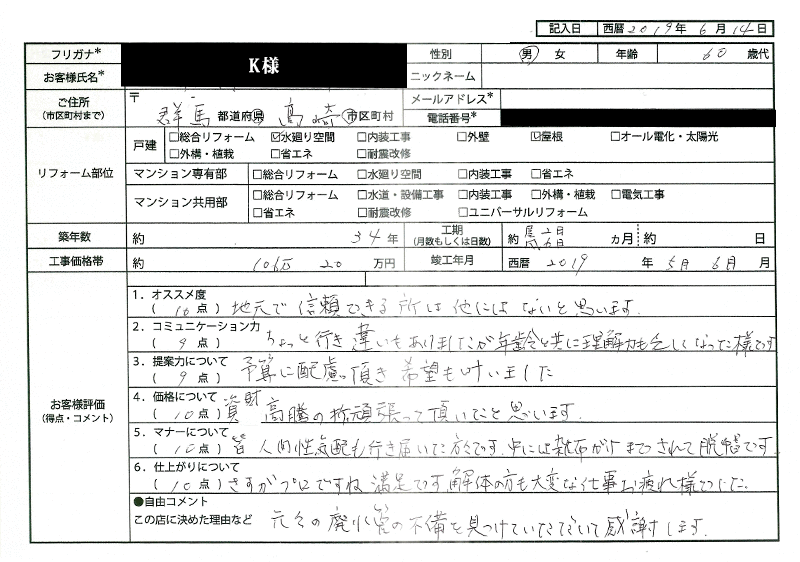 記入日 西暦 2019年 6月 14日
フリガナ* K様 性別 男 女 年齢 60 歳代
お客様氏名* ニックネーム
ご住所 (市区町村まで) 〒 群馬 都道府県 高崎 市区町村 メールアドレス*
電話番号*
リフォーム部位 戸建 □総合リフォーム ☑水廻り空間 □内装工事 □外壁 ☑屋根 □オール電化・太陽光
□外構・植栽 □省エネ □耐震改修
マンション専有部 □総合リフォーム □水廻り空間 □内装工事 □省エネ
マンション共用部 □総合リフォーム □水道・設備工事 □内装工事 □外構・植栽 □電気工事
□省エネ □耐震改修 □ユニバーサルリフォーム
築年数 約 34年 工期 (月数もしくは日数) 約 2日 6日 ヵ月 約 日
工事価格帯 約 106万 20 万円 竣工年月 西暦 2019 年 5月 6月 月
お客様評価 (得点・コメント)
1. オススメ度 (10点) 地元で信頼できる所は他にはないと思います.
2. コミュニケーション力 (9点) ちょっと行き違いもありましたが年齢と共に理解力も乏しくなった様です
3. 提案力について (9点) 予算に配慮頂き希望も叶いました
4. 価格について (10点) 資財高騰の折頑張って頂いたと思います.
5. マナーについて (10点) 皆人間性気配も行き届いた方々です.中には雑布がけまでされて脱帽です.
6. 仕上がりについて (10点) さすがプロですね満足です.解体の方も大変な仕事お疲れ様でした.
●自由コメント
この店に決めた理由など 元々の廃水管の不備を見つけていただいて感謝します.